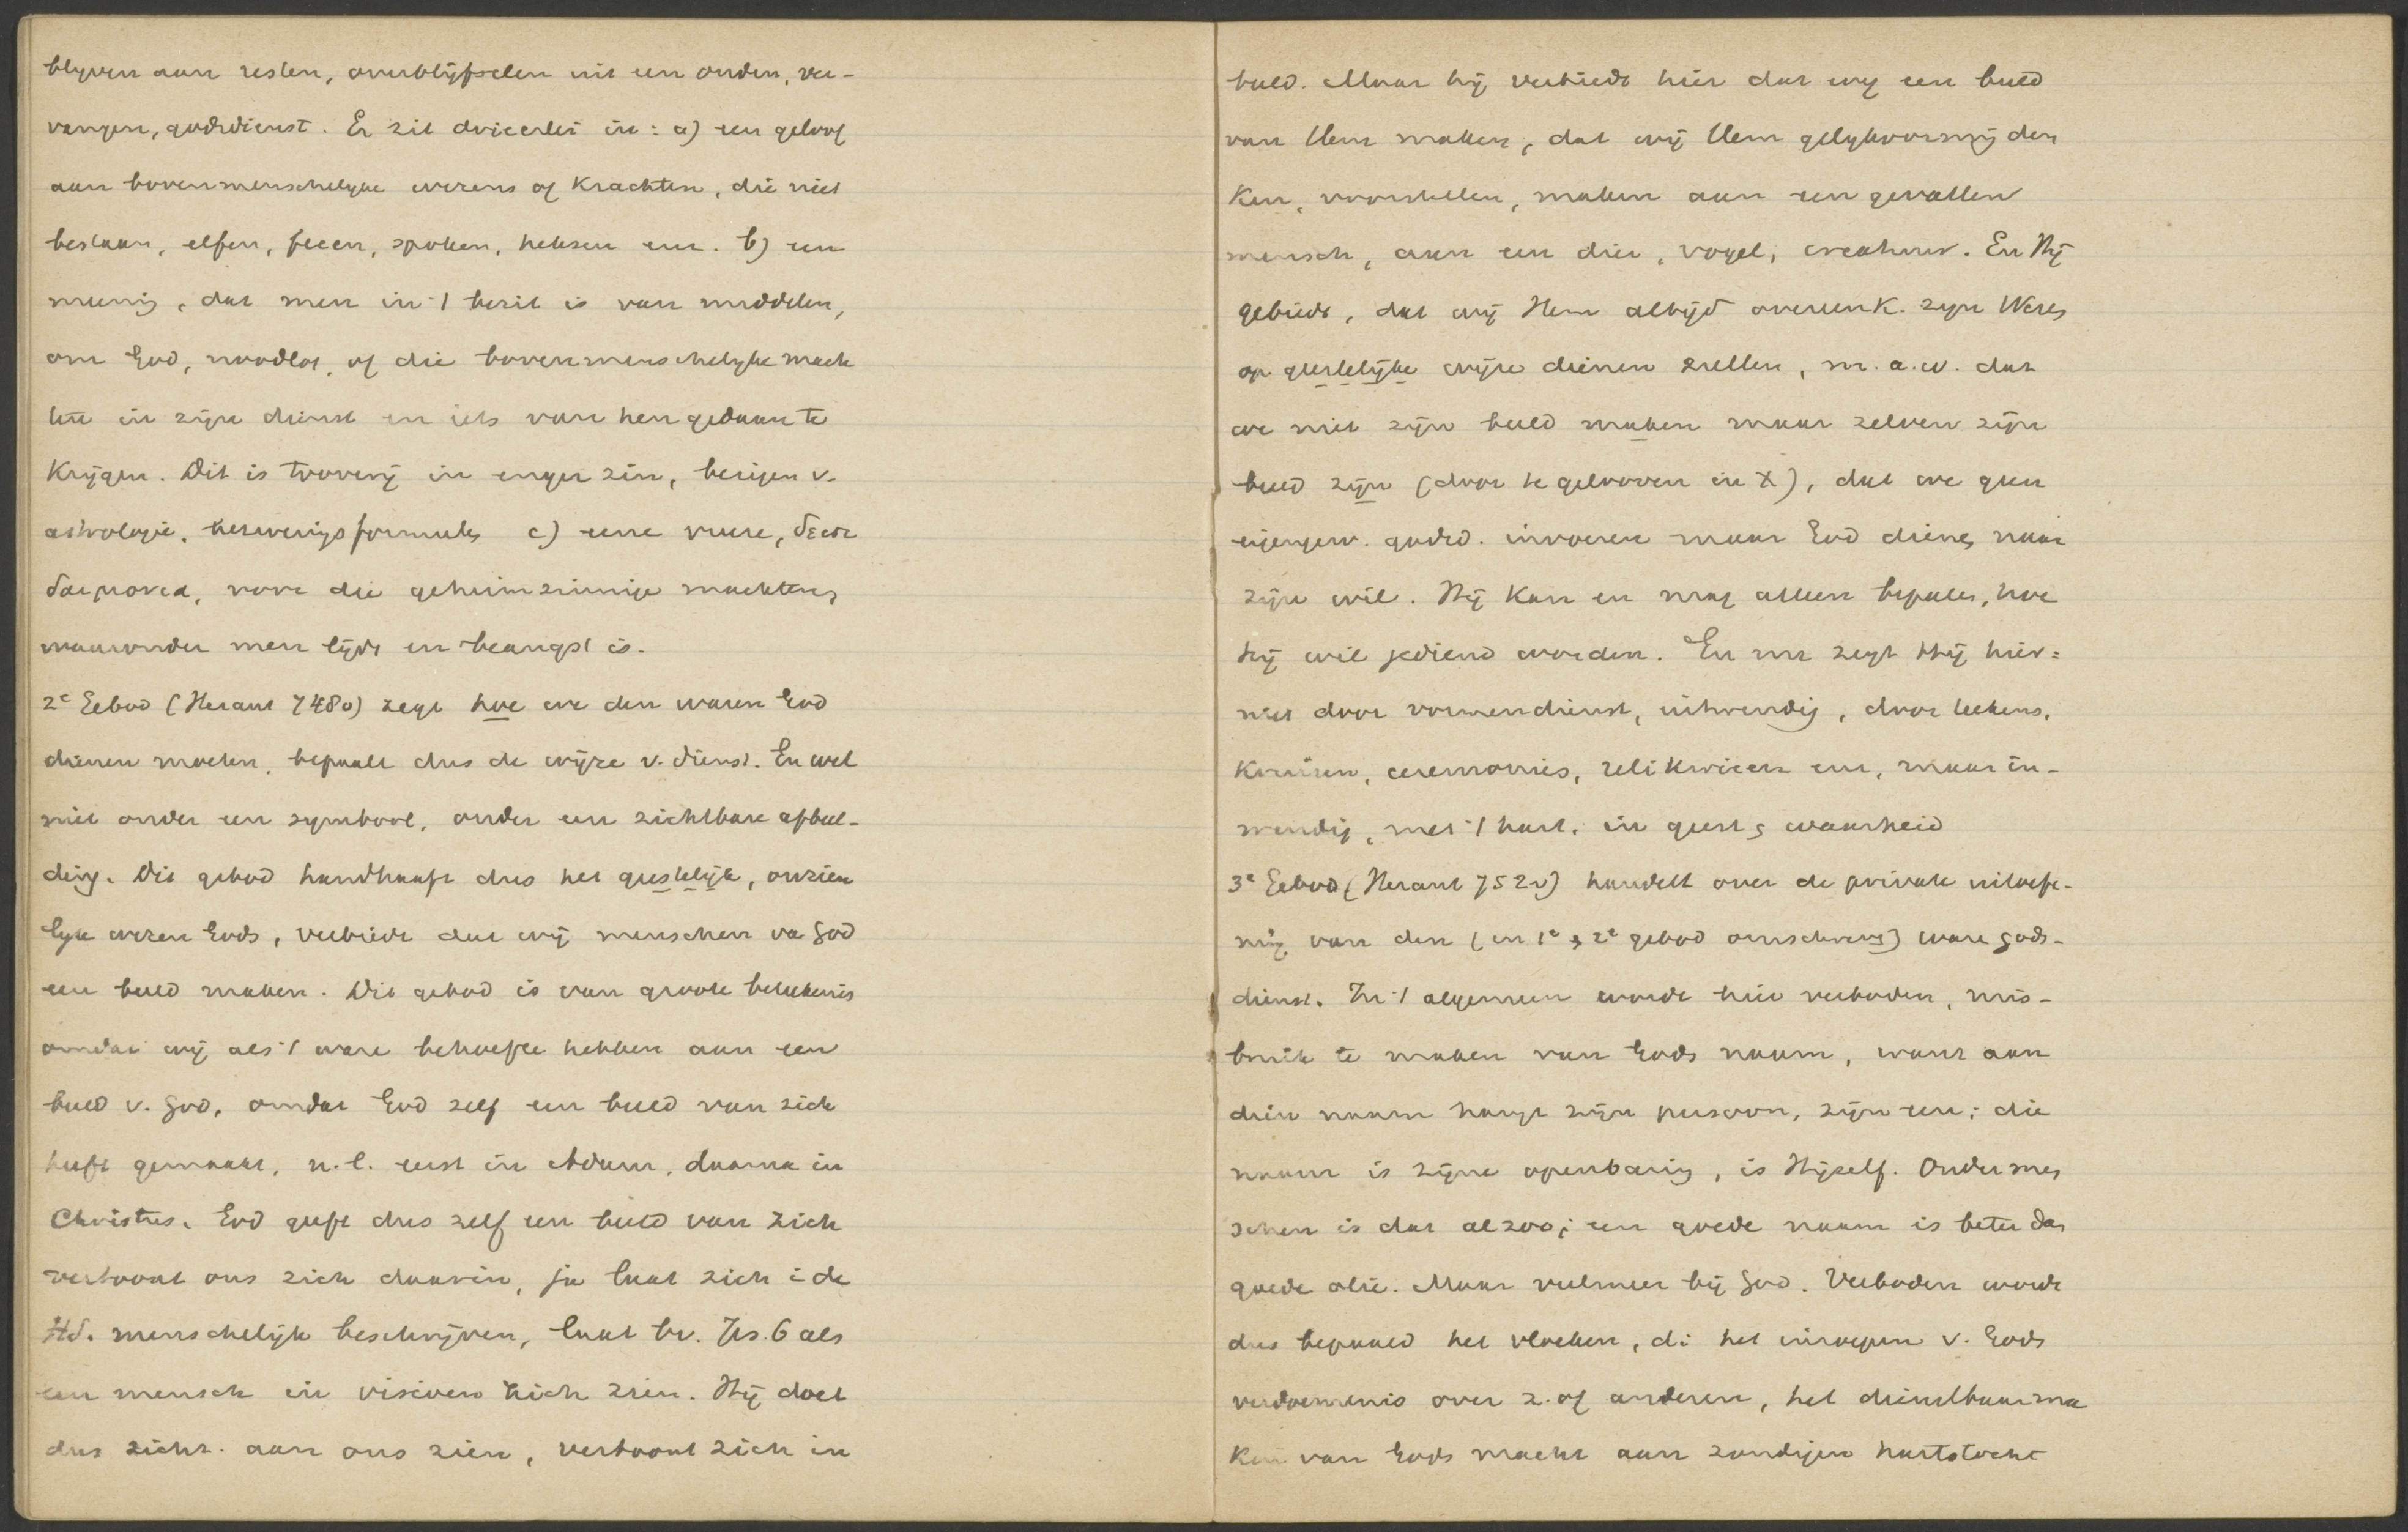 blyven aan resten, overblijfselen uit een ouden, ver-
vangen, godsdienst. Er zit drieerlei in: a) een geloof
aan bovenmenschelyke wezens of krachten, die niet
bestaan, elfen, feeen, spoken, heksen enz. b) een
mening, dat men in 't bezit is van middelen,
om God, noodlot, of die bovenmenschelyke mach
ten in zijn dienst en iets van hen gedaan te
krijgen. Dit is tooverij in enger zin, bezigen v.
astrologie, bezweringsformules c) eene vreze, δεισι
δαιμονια, voor die geheimzinnige machten,
waaronder men lijdt en beangst is.
2e Gebod (Heraut 7480) zegt hoe we den waren God
dienen moeten, bepaalt dus de wijze v. dienst. En wel
niet onder een symbool, onder een zichtbare afbeel-
ding. Dit gebod handhaaft dus het geestelijk, onzien
lyk wezen Gods, verbiedt dat wij menschen va God
een beeld maken. Dit gebod is van groote beteekenis
omdat wij als 't ware behoefte hebben aan een
beeld v. God, omdat God zelf een beeld van zich
heeft gemaakt, n.l. eerst in Adam, daarna in
Christus. God geeft dus zelf een beeld van zich
vertoont ons zich daarin, ja laat zich i de
Hd. menschelijk beschrijven, laat bv. Jes. 6 als
een mensch in visioen zich zien. Hij doet
dus zicht. aan ons zien, vertoont zich in
beeld. Maar hij verbiedt hier dat wij een beeld
van Hem maken, dat wij Hem gelykvormig den
ken, voorstellen, maken aan een gevallen
mensch, aan een dier, vogel, creatuur. En Hij
gebiedt, dat wij Hem altijd overeenk. zyn Wezen
op geestelijke wijze dienen zullen, m.a.w. dat
we niet zijn beeld maken maar zelven zijn
beeld zijn (door te gelooven in X), dat we geen
eigenw. godsd. invoeren maar God dienen naar
zijn wil. Hij kan en mag alleen bepalen, hoe
hij wil gediend worden. En nu zegt Hij hier:
niet door vormendienst, uitwendig, door teekens,
kruisen, ceremonies, relikwieen enz, maar in-
wendig, met 't hart, in geest & waarheid
3e Gebod (Heraut 7520) handelt over de private uitoefe-
ning van den (in 1e & 2e gebod omschreven) ware gods-
dienst. In 't algemeen wordt hier verboden, mis-
bruik te maken van Gods naam, want aan
dien naam hangt zijn persoon, zijn eer; die
naam is zijne openbaring, is Hijzelf. Onder men
schen is dat al zoo; een goede naam is beter dan
goede olie. Maar veelmeer bij God. Verboden wordt
dus bepaald het vloeken, di het inroepen v. Gods
verdoemenis over z. of anderen, het dienstbaar ma
ken van Gods macht aan zondigen hartstocht